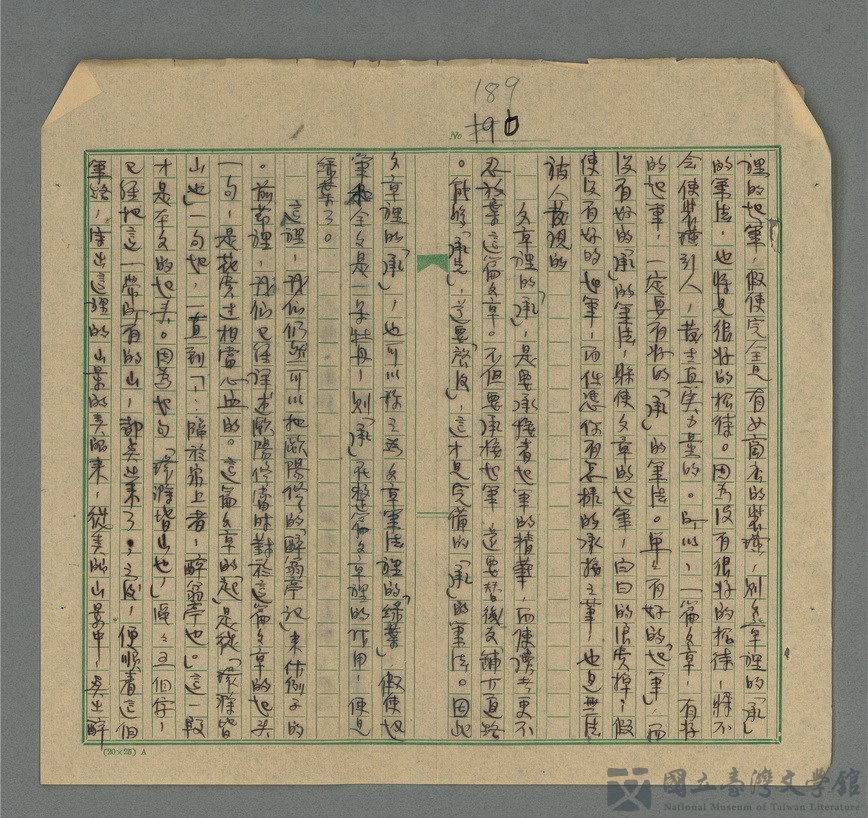 189
190
No
裡的起筆，假使完全是有如商店的裝璜，則文章裡的「承」
的筆法，也將是很好的招待。因為沒有很好的招待，縱不
会使裝璜引人，發生真实力量的。所以，一篇文章，有好
的起筆，一定要有好的「承」的筆法。單是有好的「起筆」而
沒有好的「承」的筆法，縱使文章的起筆，白白的浪費掉，假
使沒有好的起筆，而任憑你有怎樣的承接之筆，也是無法
被人發現的
文章裡的「承」，是要承接着起筆的精華，而使讀者更不
忍放棄這篇文章。不但要承接起筆，還要替後文鋪下道路
。能夠「承先」，並要「啓後」，這才是完備的「承」的筆法。因此
文章裡的「承」，也可以稱之為文章筆法裡的「綠葉」，假使起
筆和全文是一朵牡丹，則「承」在整篇文章裡的作用，便是
綠葉了。
這裡，我們仍然可以把歐陽修的「醉翁亭記」來作例子的
。前節裡，我們已經詳述歐陽修當時對於這篇文章的起头
一句，是花費了相當心血的。這篇文章的「起」是從「環滁皆
山也」一句起，一直到「：臨於泉上者，醉翁亭也」。這一段
才是本文的起头。因為起句「環滁皆山也」，僅僅五個字，
已經把這一帶所有的山，都点出來了；之後，便順着這個
筆路，字出這裡的山景的美點來，從美的山景中，点出醉
(20×25) A
國立臺灣文學館
National Museum of Taiwan Literature